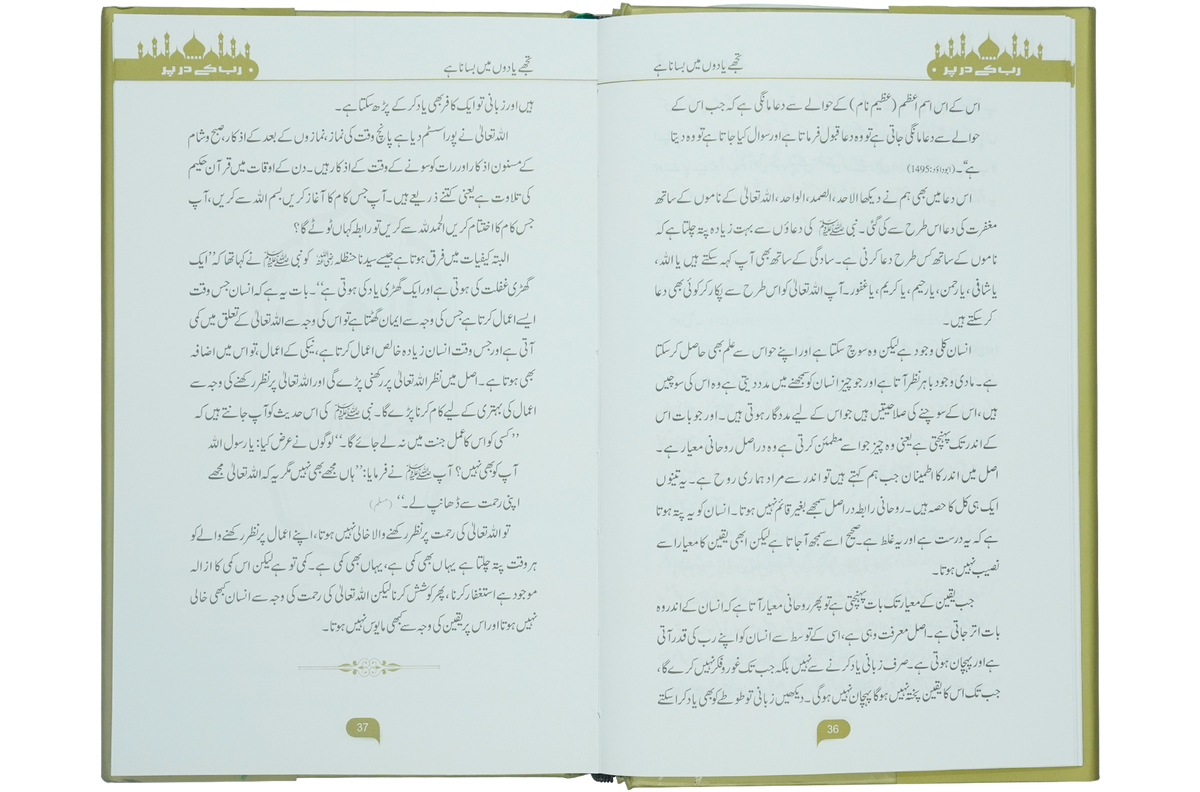 رب کے در پر
تجھے یادوں میں بسانا ہے
اس کے اس اسم اعظم (عظیم نام) کے حوالے سے دعا مانگی ہے کہ جب اس کے
حوالے سے دعا مانگی جاتی ہے تو وہ دعا قبول فرماتا ہے اور سوال کیا جاتا ہے تو وہ دیتا
ہے“۔ (ابوداؤد:1495)
اس دعا میں بھی ہم نے دیکھا الاحد، الصمد، الواحد، اللہ تعالیٰ کے ناموں کے ساتھ
مغفرت کی دعا اس طرح سے کی گئی۔ نبی ﷺ کی دعاؤں سے بہت زیادہ پتہ چلتا ہے کہ
ناموں کے ساتھ کس طرح دعا کرنی ہے۔ سادگی کے ساتھ بھی آپ کہہ سکتے ہیں یا اللہ،
یا شافی، یا رحمن، یا رحیم، یا کریم، یا غفور۔ آپ اللہ تعالیٰ کو اس طرح سے پکار کر کوئی بھی دعا
کر سکتے ہیں۔
انسان کلی وجود ہے لیکن وہ سوچ سکتا ہے اور اپنے حواس سے علم بھی حاصل کر سکتا
ہے۔ مادی وجود باہر نظر آتا ہے اور جو چیز انسان کو سمجھنے میں مدد دیتی ہے وہ اس کی سوچیں
ہیں، اس کے سوچنے کی صلاحیتیں ہیں جو اس کے لیے مددگار ہوتی ہیں۔ اور جو بات اس
کے اندر تک پہنچتی ہے یعنی وہ چیز جو اسے مطمئن کرتی ہے وہ دراصل روحانی معیار ہے۔
اصل میں اندر کا اطمینان جب ہم کہتے ہیں تو اندر سے مراد ہماری روح ہے۔ یہ تینوں
ایک ہی کل کا حصہ ہیں۔ روحانی رابطہ دراصل سمجھے بغیر قائم نہیں ہوتا۔ انسان کو یہ پتہ ہوتا
ہے کہ یہ درست ہے اور یہ غلط ہے۔ صحیح اسے سمجھ آ جاتا ہے لیکن ابھی یقین کا معیار اسے
نصیب نہیں ہوتا۔
جب یقین کے معیار تک بات پہنچتی ہے تو پھر روحانی معیار آتا ہے کہ انسان کے اندر وہ
بات اتر جاتی ہے۔ اصل معرفت وہی ہے، اسی کے توسط سے انسان کو اپنے رب کی قدر آتی
ہے اور پہچان ہوتی ہے۔ صرف زبانی یاد کرنے سے نہیں بلکہ جب تک غور و فکر نہیں کرے گا،
جب تک اس کا یقین پختہ نہیں ہوگا پہچان نہیں ہوگی۔ دیکھیں زبانی تو طوطے کو بھی یاد کرا سکتے
36
رب کے در پر
تجھے یادوں میں بسانا ہے
ہیں اور زبانی تو ایک کافر بھی یاد کر کے پڑھ سکتا ہے۔
اللہ تعالیٰ نے پورا سسٹم دیا ہے پانچ وقت کی نماز، نمازوں کے بعد کے اذکار، صبح و شام
کے مسنون اذکار اور رات کو سونے کے وقت کے اذکار ہیں۔ دن کے اوقات میں قرآن حکیم
کی تلاوت ہے یعنی کتنے ذریعے ہیں۔ آپ جس کام کا آغاز کریں بسم اللہ سے کریں، آپ
جس کام کا اختتام کریں الحمد للہ سے کریں تو رابطہ کہاں ٹوٹے گا؟
البتہ کیفیات میں فرق ہوتا ہے جیسے سیدنا حنظلہ رضی اللہ عنہ کو نبی ﷺ نے کہا تھا کہ ”ایک
گھڑی غفلت کی ہوتی ہے اور ایک گھڑی یاد کی ہوتی ہے“۔ بات یہ ہے کہ انسان جس وقت
ایسے اعمال کرتا ہے جس کی وجہ سے ایمان گھٹتا ہے تو اس کی وجہ سے اللہ تعالیٰ کے تعلق میں کمی
آتی ہے اور جس وقت انسان زیادہ خالص اعمال کرتا ہے، نیکی کے اعمال، تو اس میں اضافہ
بھی ہوتا ہے۔ اصل میں نظر اللہ تعالیٰ پر رکھنی پڑے گی اور اللہ تعالیٰ پر نظر رکھنے کی وجہ سے
اعمال کی بہتری کے لیے کام کرنا پڑے گا۔ نبی ﷺ کی اس حدیث کو آپ جانتے ہیں کہ
”کسی کو اس کا عمل جنت میں نہ لے جائے گا۔“ لوگوں نے عرض کیا: یا رسول اللہ
آپ کو بھی نہیں؟ آپ ﷺ نے فرمایا: ”ہاں مجھے بھی نہیں مگر یہ کہ اللہ تعالیٰ مجھے
اپنی رحمت سے ڈھانپ لے۔“ (مسلم)
تو اللہ تعالیٰ کی رحمت پر نظر رکھنے والا خالی نہیں ہوتا، اپنے اعمال پر نظر رکھنے والے کو
ہر وقت پتہ چلتا ہے یہاں بھی کمی ہے، یہاں بھی کمی ہے۔ کمی تو ہے لیکن اس کمی کا ازالہ
موجود ہے استغفار کرنا، پھر کوشش کرنا لیکن اللہ تعالیٰ کی رحمت کی وجہ سے انسان کبھی خالی
نہیں ہوتا اور اس پر یقین کی وجہ سے کبھی مایوس نہیں ہوتا۔
37